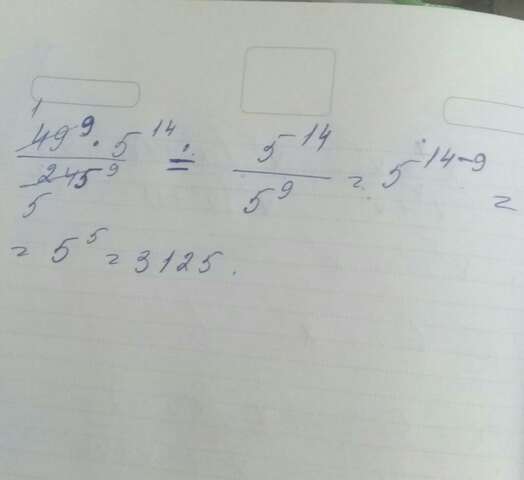 1
49⁹ · 5¹⁴ / 245⁹ = 5¹⁴ / 5⁹ = 5¹⁴⁻⁹ =
5
= 5⁵ = 3125.